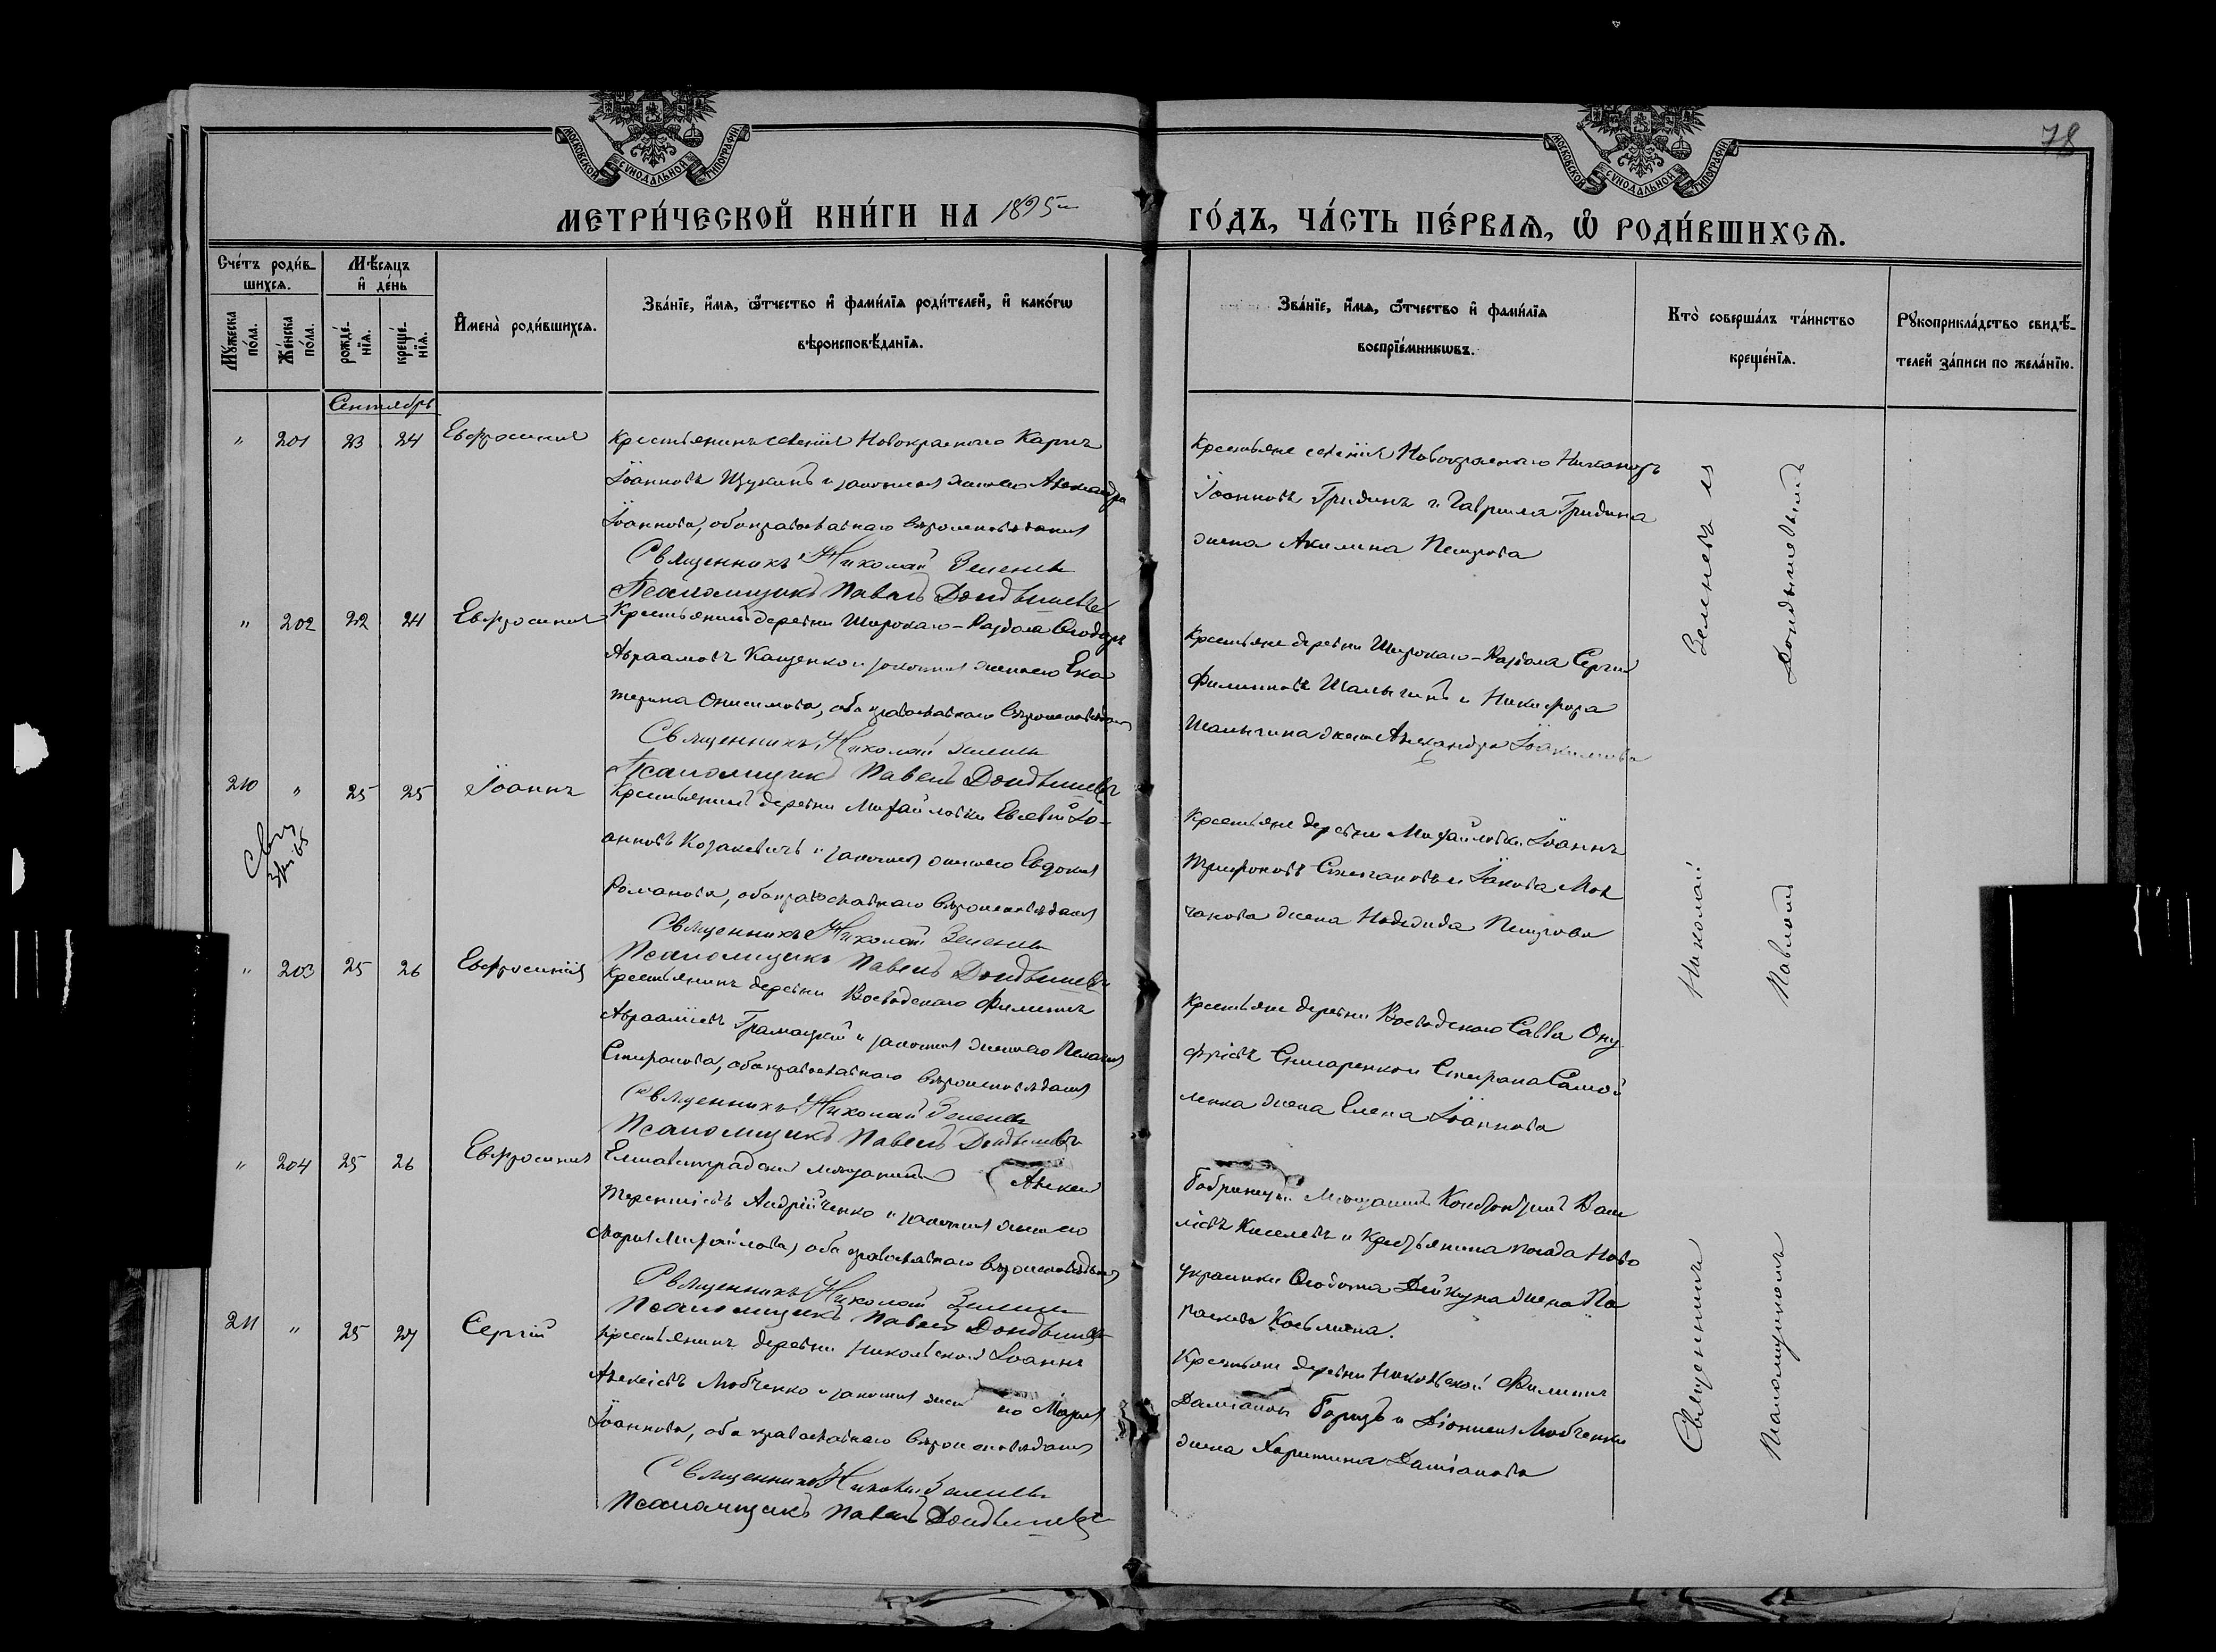 78
МОСКОВСКОЙ СУНОДАЛЬНОЙ ТИПОГРАФІИ
МОСКОВСКОЙ СУНОДАЛЬНОЙ ТИПОГРАФІИ
МЕТРИ́ЧЕСКОЙ КНИ́ГИ НА 1895 ГО́ДЪ, ЧА́СТЬ ПЕ́РВАѦ, Ѡ РОДИ́ВШИХСѦ.
Сче́тъ роди́в-
шихсѧ.
Мѣ́сѧцъ
и҆ де́нь
Мꙋ́жеска по́ла.
Же́нска по́ла.
рожде́-
нїѧ.
креще́-
нїѧ.
И҆мена̀ роди́вшихсѧ.
Зва́нїе, и҆́мѧ, ѻ҆́тчество и҆ фами́лїѧ роди́телей, и҆ како́гѡ
вѣроисповѣ́данїѧ.
Зва́нїе, и҆́мѧ, ѻ҆́тчество и҆ фами́лїѧ
воспрїе́мникѡвъ.
Кто̀ соверша́лъ та́инство
креще́нїѧ.
Рꙋкоприкла́дство свидѣ́-
телей за́писи по жела́нїю.
Сентябрь
" 201 23 24 Евфросинія
Крестьянинъ селенія Новокрасного Карпъ
Іоанновъ Щукинъ и законная жена его Александра
Іоаннова, оба православнаго вѣроисповѣданія
Священникъ Николай Зеленевъ
Псаломщикъ Павелъ
Крестьяне селенія Новокрасного Никаноръ
Іоанновъ Гридинъ и Гавріила Гридина
жена Акилина Петрова
" 202 22 24 Евфросинія
Крестьянинъ деревни Широкаго-Раздола Ѳеодоръ
Авраамовъ Кащенко и законная жена его Ека
терина Онисимова, оба православнаго вѣроисповѣданія
Священникъ Николай Зеленевъ
Псаломщикъ Павелъ
Крестьяне деревни Широкаго-Раздола Сергій
Филипповъ Шалыгинъ и Никифора
Шалыгина жена Александра Іоакимова
210 " 25 25 Іоаннъ
Крестьянинъ деревни Михайловки Евсевій Іо-
анновъ Козакевичъ и законная жена его Евдокія
Романова, оба православнаго вѣроисповѣданія
Священникъ Николай Зеленевъ
Псаломщикъ Павелъ
Крестьяне деревни Михайловки Іоаннъ
Трифоновъ Степановъ и Іакова Мол
чанова жена Надежда Петрова
" 203 25 26 Евфросинія
Крестьянинъ деревни Воеводскаго Филиппъ
Авраамиевъ Грамацкій и законная жена его Пелагія
Спиридонова, оба православнаго вѣроисповѣданія
Священникъ Николай Зеленевъ
Псаломщикъ Павелъ
Крестьяне деревни Воеводскаго Савва Ону
фріевъ и Самой
ленка жена Елена Іоаннова
" 204 25 26 Евфросинія
Елисаветградскій мѣщанинъ Алексѣй
Терентіевъ Андрійченко и законная жена его
Марія Михайлова, оба православнаго вѣроисповѣданія
Священникъ Николай Зеленевъ
Псаломщикъ Павелъ
Бобринецкій мѣщанинъ Василь
іевъ Киселевъ и крестьянина посада Ново
украинки Дейкуна жена Па
раскева Косьмина.
211 " 25 27 Сергій
Крестьянинъ деревни Никольской Іоаннъ
Алексіевъ Любченко и законная жена его Марія
Іоаннова, оба православнаго вѣроисповѣданія
Священникъ Николай Зеленевъ
Псаломщикъ Павелъ
Крестьяне деревни Никольской Филиппъ
Даміановъ и Діонисія Любченка
жена Харитина Даміанова
Священникъ Николай Зеленевъ и
Псаломщикомъ Павломъ